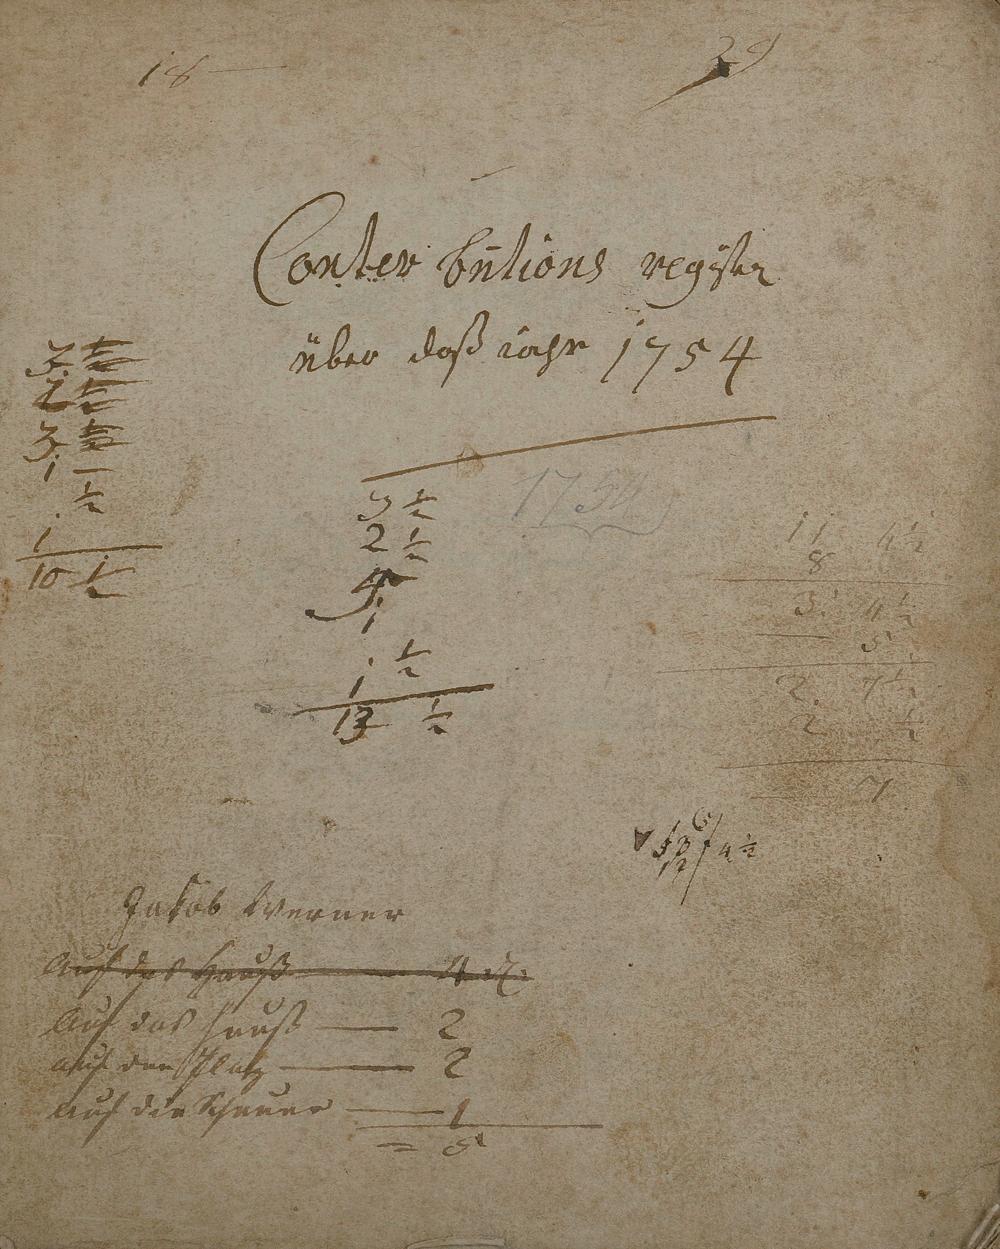 18 — 29
Conter butions register
über daß iahr 1754
3 ½
2 ½
3 ½
1 —
½
1
10 ½
3 ½
2 ½
4
1
½
1
13 ½
1754
11 4½
8
3 4½
5
2 7½
2 ½
7
4 ½
Jakob Werner
Auf das Hauß —
Auf das Hauß — 2
auf den Platz — 2
auf die Scheuer — 1
= 5